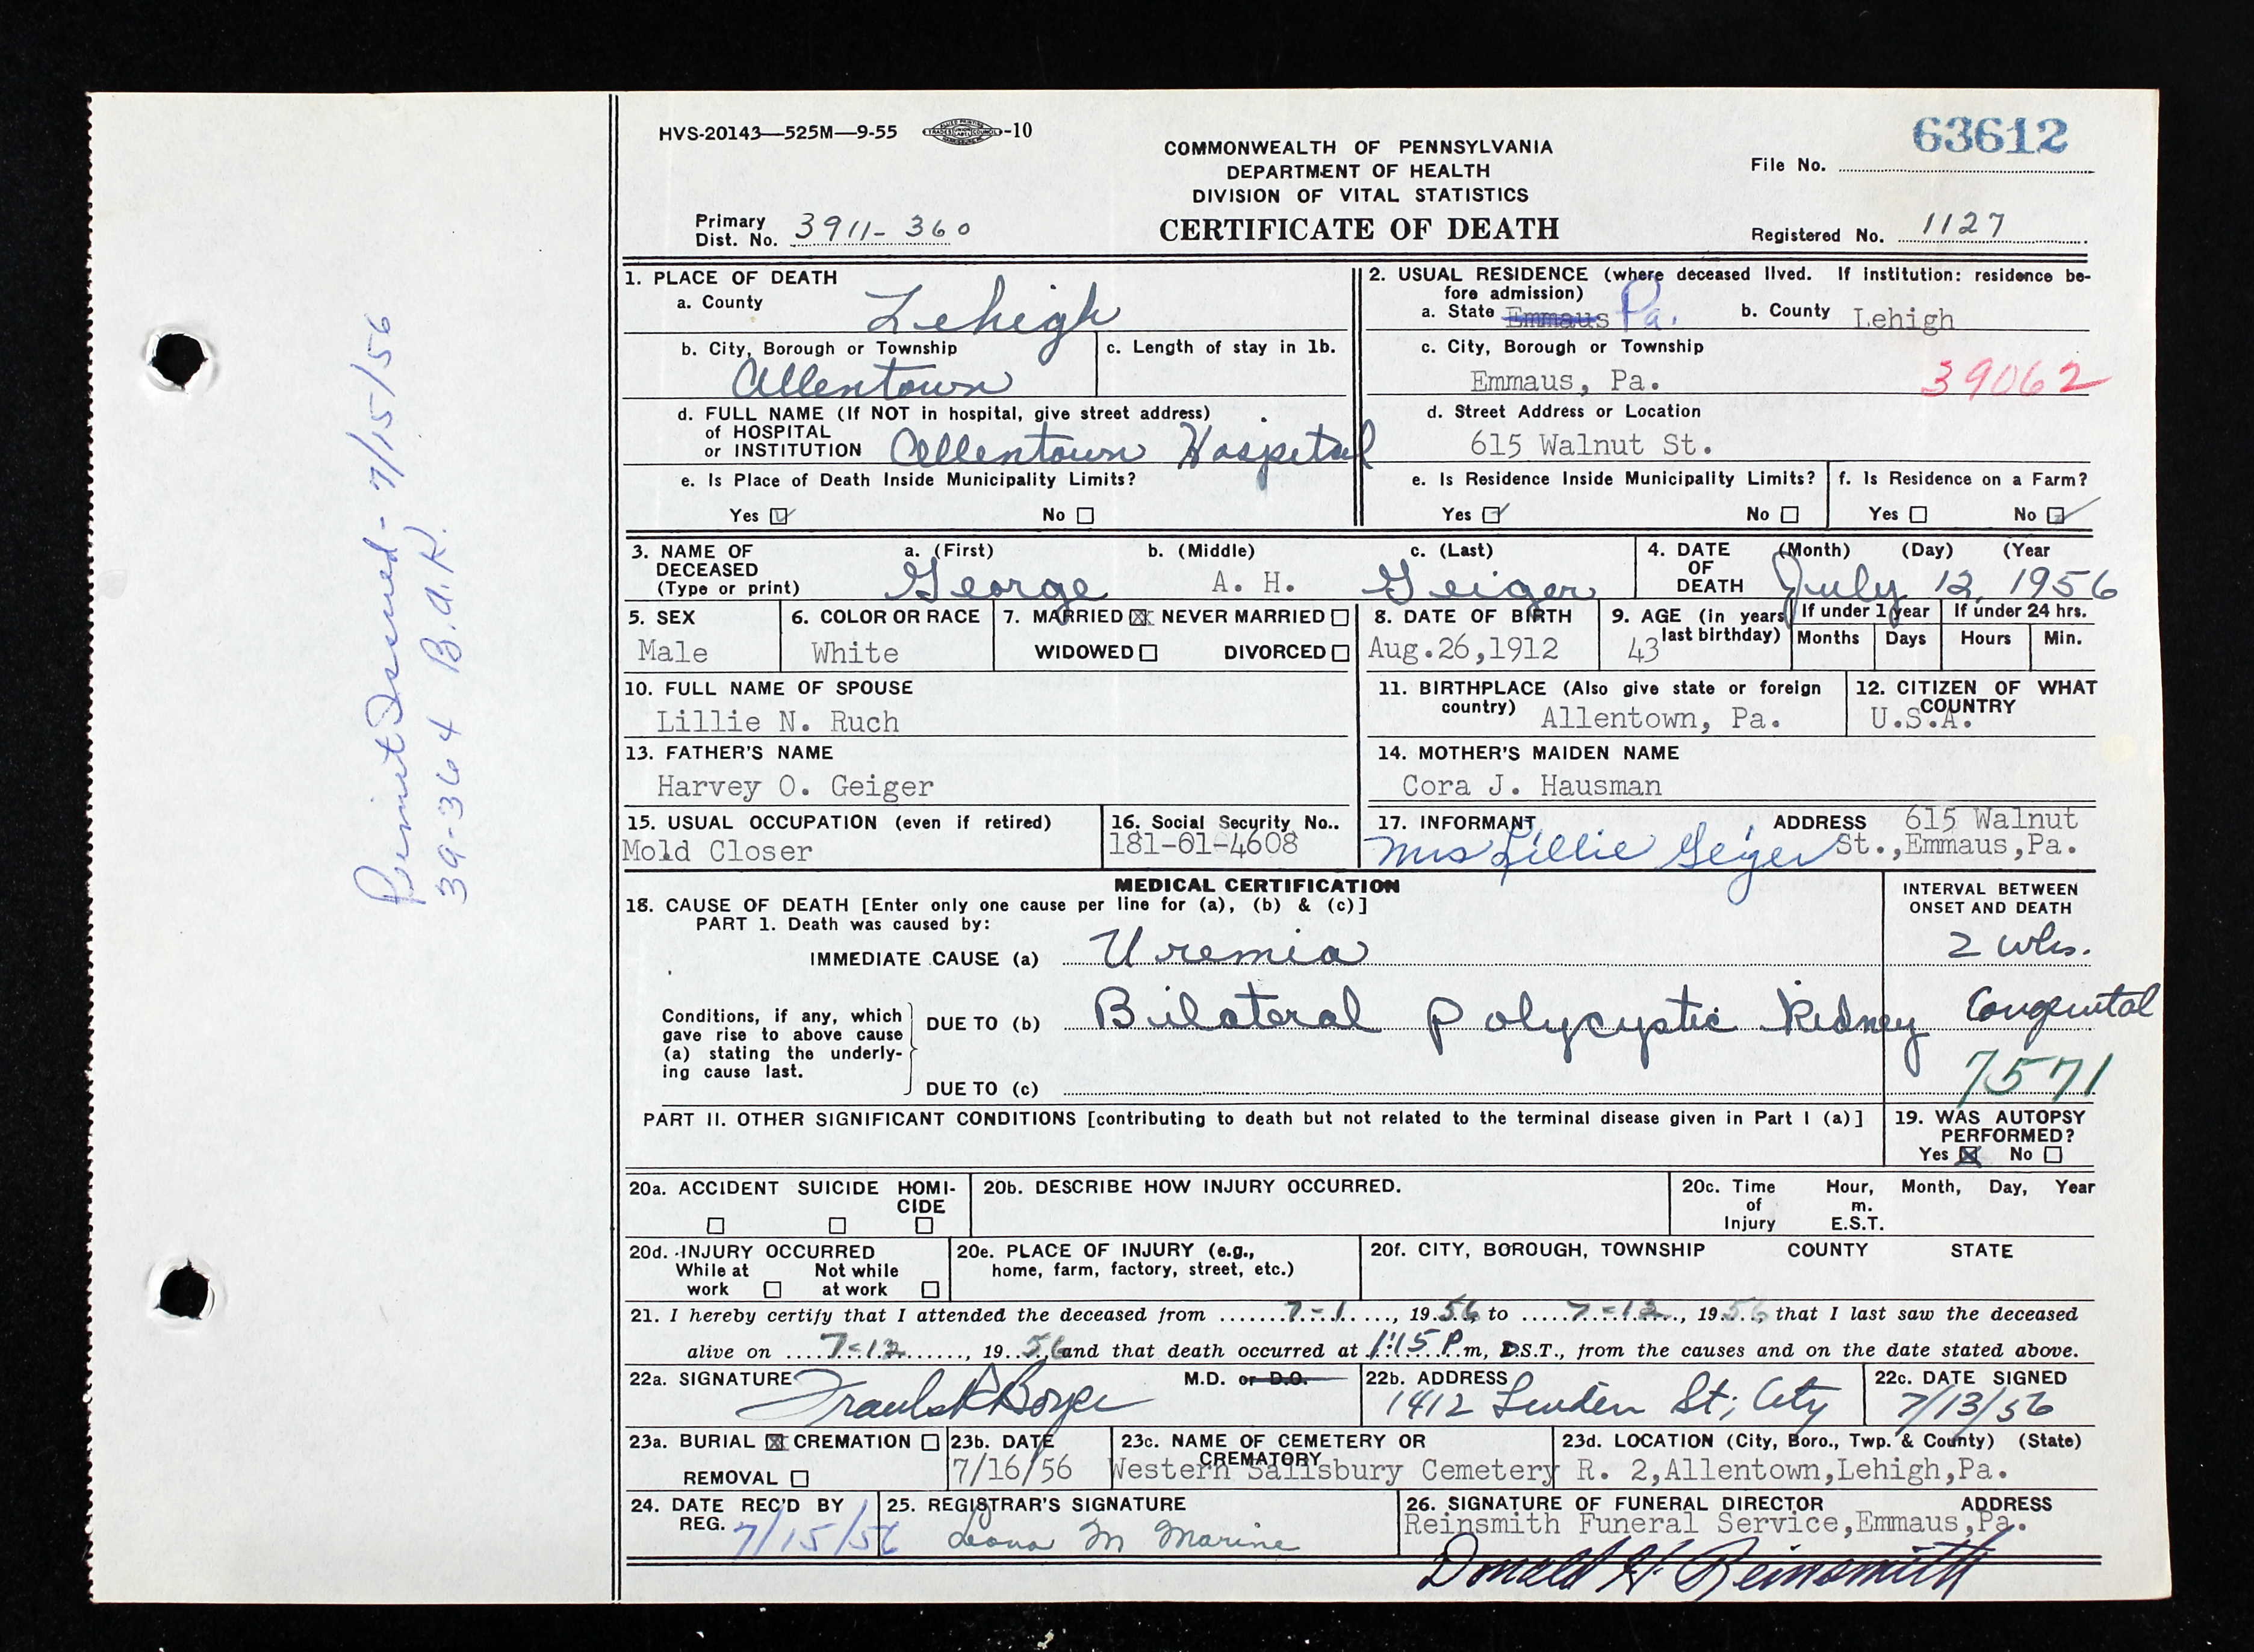 HVS-20143—525M—9-55 -10
63612
COMMONWEALTH OF PENNSYLVANIA
DEPARTMENT OF HEALTH
DIVISION OF VITAL STATISTICS
CERTIFICATE OF DEATH
File No.
Primary
Dist. No. 3911-360
Registered No. 1127
Permit Issued - 7/15/56
39-364 B.A.K.
1. PLACE OF DEATH
a. County Lehigh
b. City, Borough or Township
Allentown
c. Length of stay in 1b.
d. FULL NAME (If NOT in hospital, give street address)
of HOSPITAL
or INSTITUTION Allentown Hospital
e. Is Place of Death Inside Municipality Limits?
Yes ☑ No ☐
2. USUAL RESIDENCE (where deceased lived. If institution: residence be-
fore admission)
a. State Emmaus Pa. b. County Lehigh
c. City, Borough or Township
Emmaus, Pa. 39062
d. Street Address or Location
615 Walnut St.
e. Is Residence Inside Municipality Limits?
Yes ☑ No ☐
f. Is Residence on a Farm?
Yes ☐ No ☑
3. NAME OF
DECEASED
(Type or print)
a. (First) b. (Middle) c. (Last)
George A. H. Geiger
4. DATE
OF
DEATH
(Month) (Day) (Year
July 12, 1956
5. SEX
Male
6. COLOR OR RACE
White
7. MARRIED ☒ NEVER MARRIED ☐
WIDOWED ☐ DIVORCED ☐
8. DATE OF BIRTH
Aug.26,1912
9. AGE (in years
last birthday)
43
If under 1 year
Months Days
If under 24 hrs.
Hours Min.
10. FULL NAME OF SPOUSE
Lillie N. Ruch
11. BIRTHPLACE (Also give state or foreign
country) Allentown, Pa.
12. CITIZEN OF WHAT
COUNTRY
U.S.A.
13. FATHER'S NAME
Harvey O. Geiger
14. MOTHER'S MAIDEN NAME
Cora J. Hausman
15. USUAL OCCUPATION (even if retired)
Mold Closer
16. Social Security No..
181-01-4608
17. INFORMANT ADDRESS 615 Walnut
Mrs Lillie Geiger St.,Emmaus,Pa.
MEDICAL CERTIFICATION
18. CAUSE OF DEATH [Enter only one cause per line for (a), (b) & (c)]
PART 1. Death was caused by:
INTERVAL BETWEEN
ONSET AND DEATH
IMMEDIATE CAUSE (a) Uremia 2 wks.
Conditions, if any, which
gave rise to above cause
(a) stating the underly-
ing cause last.
DUE TO (b) Bilateral polycystic kidney Congenital
DUE TO (c)
7571
PART II. OTHER SIGNIFICANT CONDITIONS [contributing to death but not related to the terminal disease given in Part I (a)]
19. WAS AUTOPSY
PERFORMED?
Yes ☒ No ☐
20a. ACCIDENT SUICIDE HOMI-
CIDE
☐ ☐ ☐
20b. DESCRIBE HOW INJURY OCCURRED.
20c. Time Hour, Month, Day, Year
of m.
Injury E.S.T.
20d. INJURY OCCURRED
While at Not while
work ☐ at work ☐
20e. PLACE OF INJURY (e.g.,
home, farm, factory, street, etc.)
20f. CITY, BOROUGH, TOWNSHIP COUNTY STATE
21. I hereby certify that I attended the deceased from 7-1, 1956, to 7-12, 1956, that I last saw the deceased
alive on 7-12, 1956 and that death occurred at 1:15 P.m, D.S.T., from the causes and on the date stated above.
22a. SIGNATURE M.D. or D.O.
Frank R Boyer
22b. ADDRESS
1412 Linden St; City
22c. DATE SIGNED
7/13/56
23a. BURIAL ☒ CREMATION ☐
REMOVAL ☐
23b. DATE
7/16/56
23c. NAME OF CEMETERY OR
CREMATORY
Western Salisbury Cemetery
23d. LOCATION (City, Boro., Twp. & County) (State)
R. 2,Allentown,Lehigh,Pa.
24. DATE REC'D BY
REG. 7/15/56
25. REGISTRAR'S SIGNATURE
Leona M Marine
26. SIGNATURE OF FUNERAL DIRECTOR ADDRESS
Reinsmith Funeral Service,Emmaus,Pa.
Donald H. Reinsmith